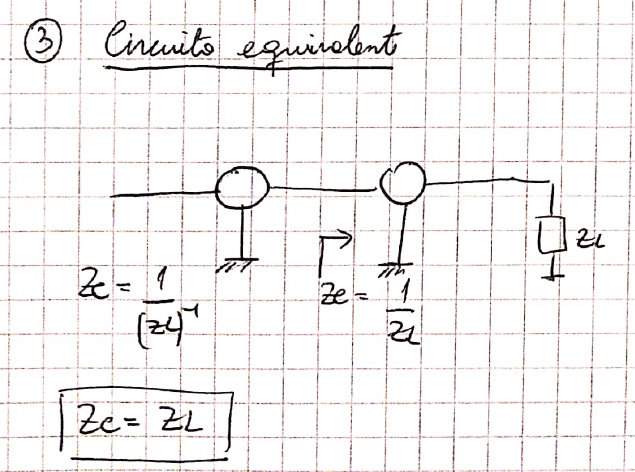 ③ Circuito equivalent
ZL
Ze = 1/(ZL)⁻¹
Ze = 1/ZL
Ze = ZL